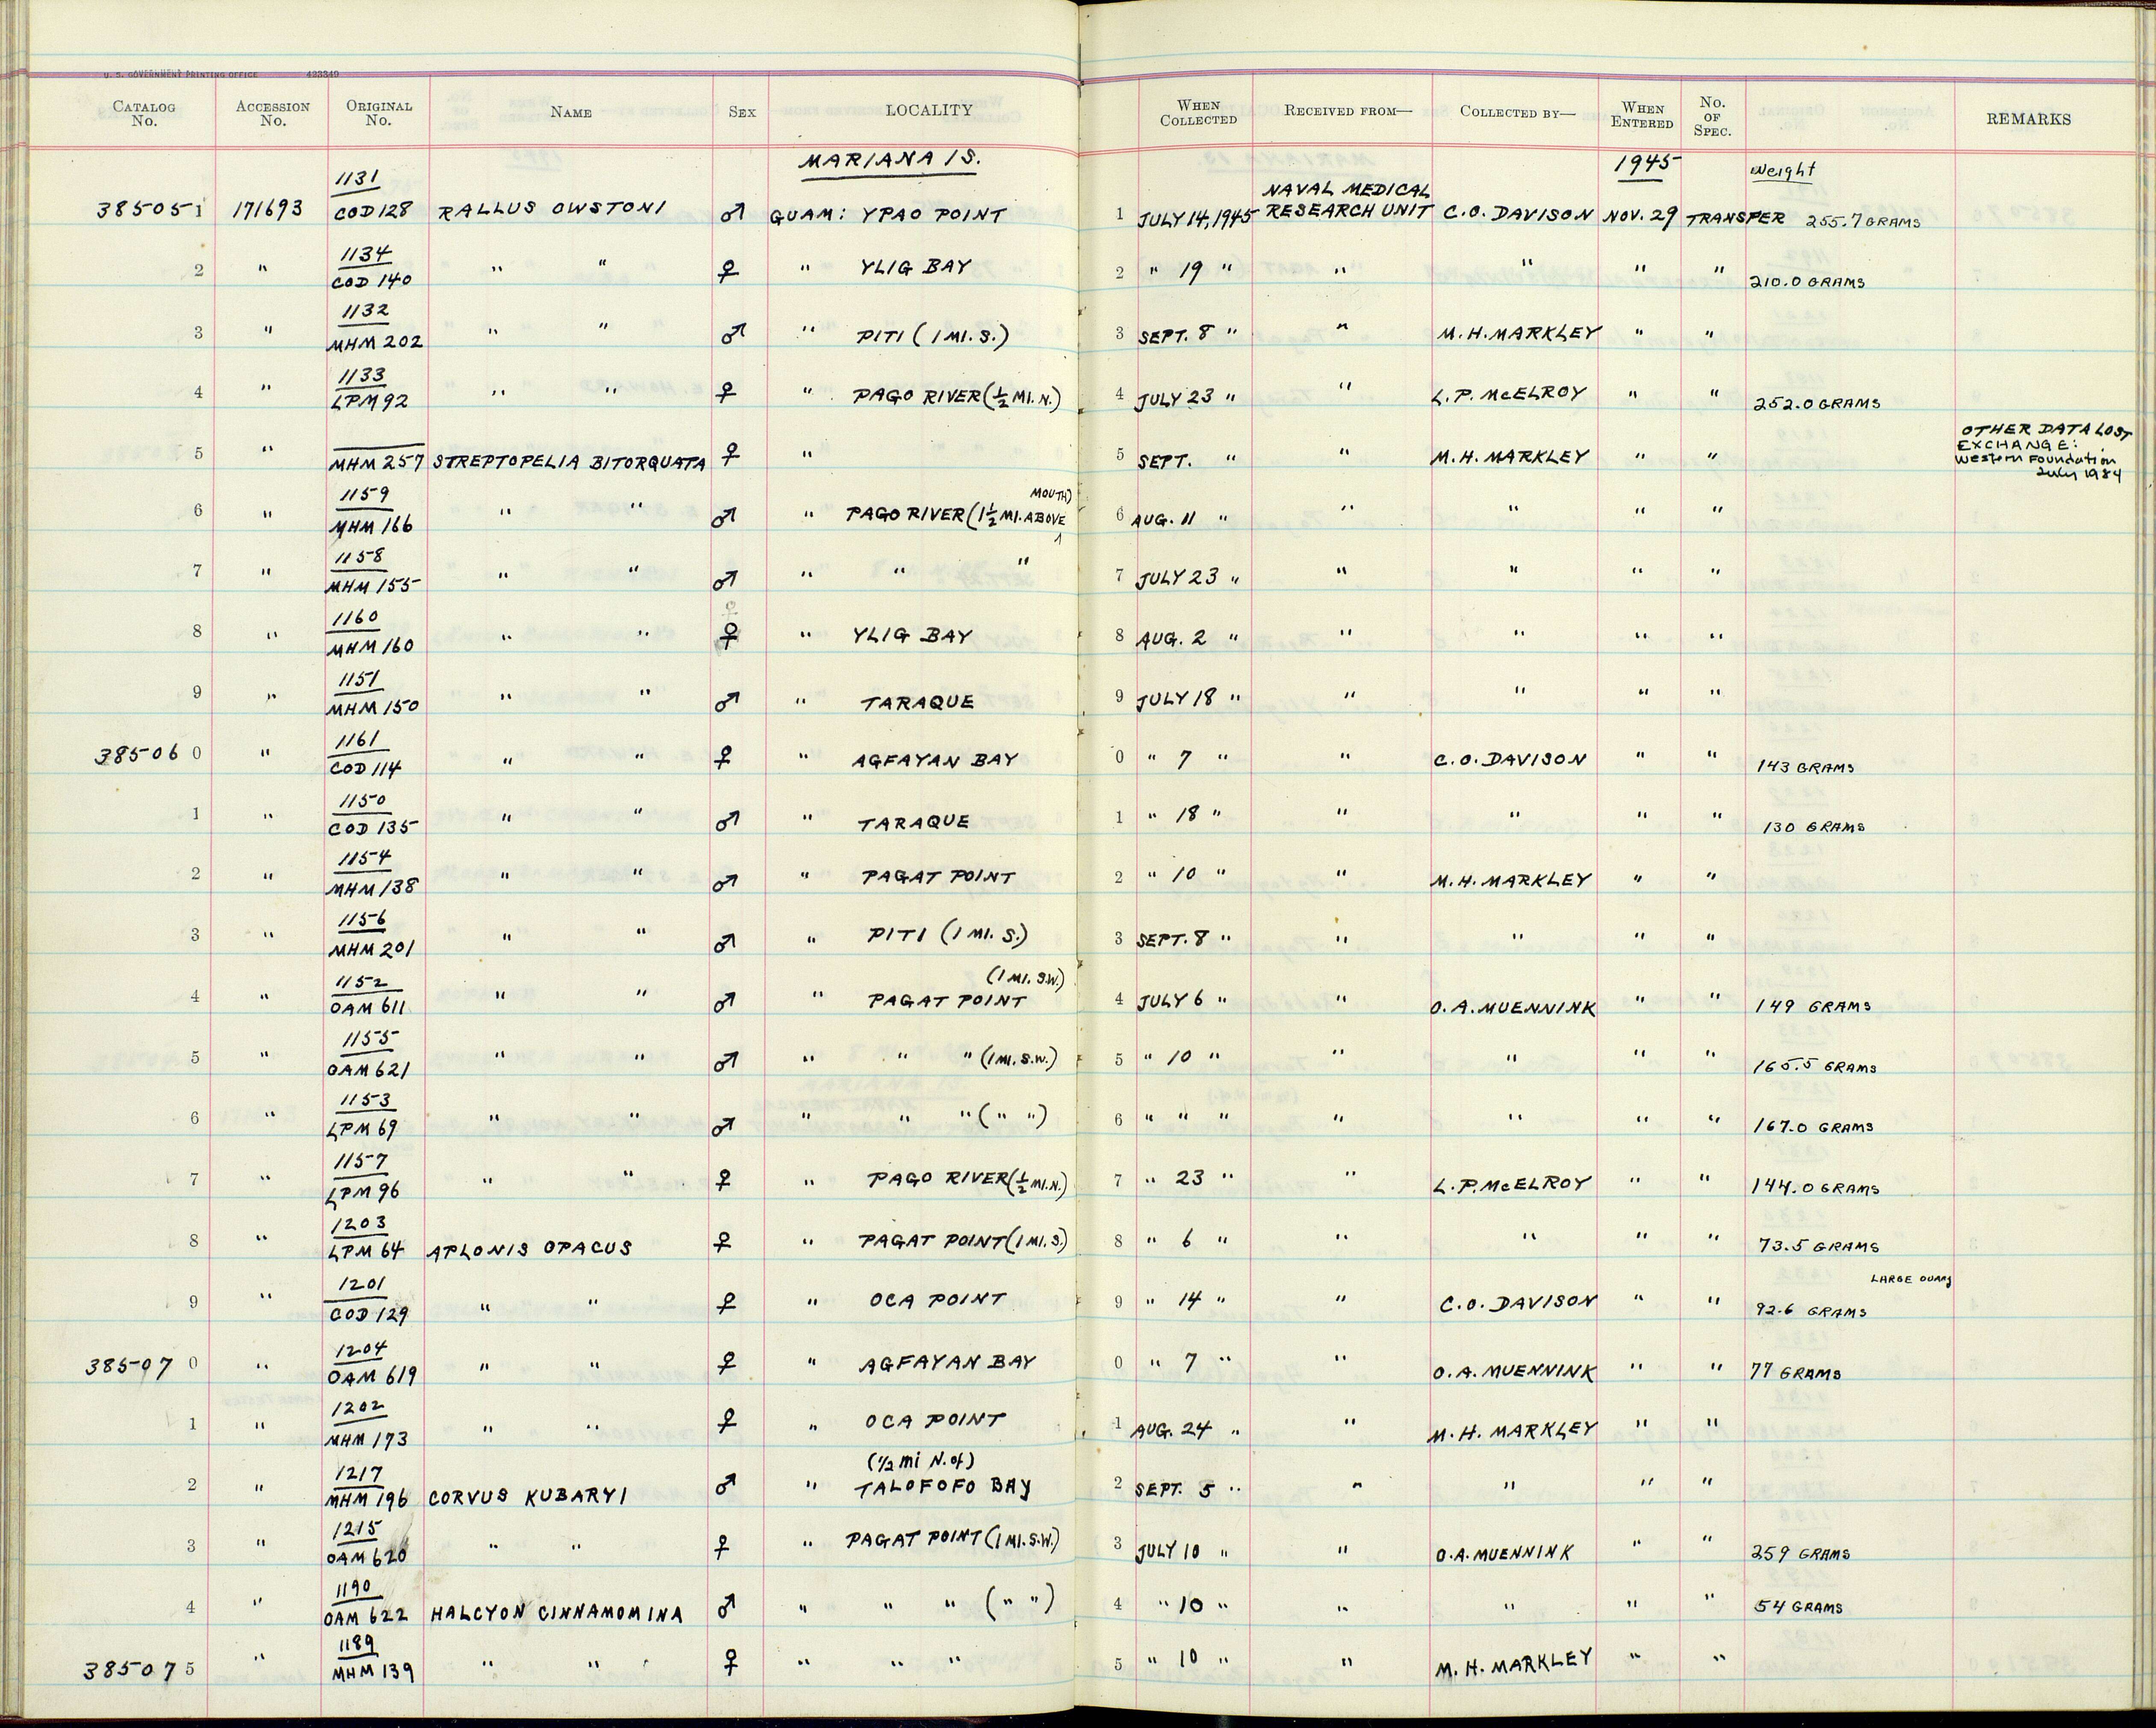 U. S. GOVERNMENT PRINTING OFFICE 423349
CATALOG No. ACCESSION No. ORIGINAL No. NAME SEX LOCALITY WHEN COLLECTED RECEIVED FROM— COLLECTED BY— WHEN ENTERED No. OF SPEC. REMARKS
MARIANA IS. 1945 Weight
1131 NAVAL MEDICAL
385051 171693 COD 128 RALLUS OWSTONI ♂ GUAM: YPAO POINT 1 JULY 14, 1945 RESEARCH UNIT C.O. DAVISON NOV. 29 TRANSFER 255.7 GRAMS
1134
2 " COD 140 " " ♀ " YLIG BAY 2 " 19 " " " " " 210.0 GRAMS
1132
3 " MHM 202 " " ♂ " PITI (1 MI. S.) 3 SEPT. 8 " " M.H. MARKLEY " "
1133
4 " LPM 92 " " ♀ " PAGO RIVER (½ MI. N.) 4 JULY 23 " " L.P. McELROY " " 252.0 GRAMS
OTHER DATA LOST
EXCHANGE:
5 " MHM 257 STREPTOPELIA BITORQUATA ♀ " 5 SEPT. " " M.H. MARKLEY " " Western Foundation
July 1984
1159 MOUTH)
6 " MHM 166 " " ♂ " PAGO RIVER (1½ MI. ABOVE 6 AUG. 11 " " " " "
1158
7 " MHM 155 " " ♂ " " " 7 JULY 23 " " " " "
1160 ♀
8 " MHM 160 " " ♀ " YLIG BAY 8 AUG. 2 " " " " "
1151
9 " MHM 150 " " ♂ " TARAQUE 9 JULY 18 " " " " "
1161
385060 " COD 114 " " ♀ " AGFAYAN BAY 0 " 7 " " C.O. DAVISON " " 143 GRAMS
1150
1 " COD 135 " " ♂ " TARAQUE 1 " 18 " " " " " 130 GRAMS
1154
2 " MHM 138 " " ♂ " PAGAT POINT 2 " 10 " " M.H. MARKLEY " "
1156
3 " MHM 201 " " ♂ " PITI (1 MI. S.) 3 SEPT. 8 " " " " "
1152 (1 MI. S.W.)
4 " OAM 611 " " ♂ " PAGAT POINT 4 JULY 6 " " O.A. MUENNINK " " 149 GRAMS
1155
5 " OAM 621 " " ♂ " " " (1 MI. S.W.) 5 " 10 " " " " " 165.5 GRAMS
1153
6 " LPM 69 " " ♂ " " " ( " " ) 6 " " " " " " " 167.0 GRAMS
1157
7 " LPM 96 " " ♀ " PAGO RIVER (½ MI. N.) 7 " 23 " " L.P. McELROY " " 144.0 GRAMS
1203
8 " LPM 64 APLONIS OPACUS ♀ " PAGAT POINT (1 MI. S.) 8 " 6 " " " " " 73.5 GRAMS
1201 LARGE OVARY
9 " COD 129 " " ♀ " OCA POINT 9 " 14 " " C.O. DAVISON " " 92.6 GRAMS
1204
385070 " OAM 619 " " ♀ " AGFAYAN BAY 0 " 7 " " O.A. MUENNINK " " 77 GRAMS
1202
1 " MHM 173 " " ♀ " OCA POINT 1 AUG. 24 " " M.H. MARKLEY " "
1217 (1/2 mi N. of)
2 " MHM 196 CORVUS KUBARYI ♂ " TALOFOFO BAY 2 SEPT. 5 " " " " "
1215
3 " OAM 620 " " ♀ " PAGAT POINT (1 MI. S.W.) 3 JULY 10 " " O.A. MUENNINK " " 259 GRAMS
1190
4 " OAM 622 HALCYON CINNAMOMINA ♂ " " " ( " " ) 4 " 10 " " " " " 54 GRAMS
1189
385075 " MHM 139 " " ♀ " " " 5 " 10 " " M.H. MARKLEY " "